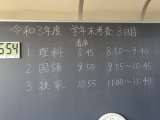 令和3年度 学年末考査 3日目
着席
1. 理科 8:45 8:50〜9:40
2. 国語 9:50 9:55〜10:45
3. 技家 10:55 11:00〜11:40
554